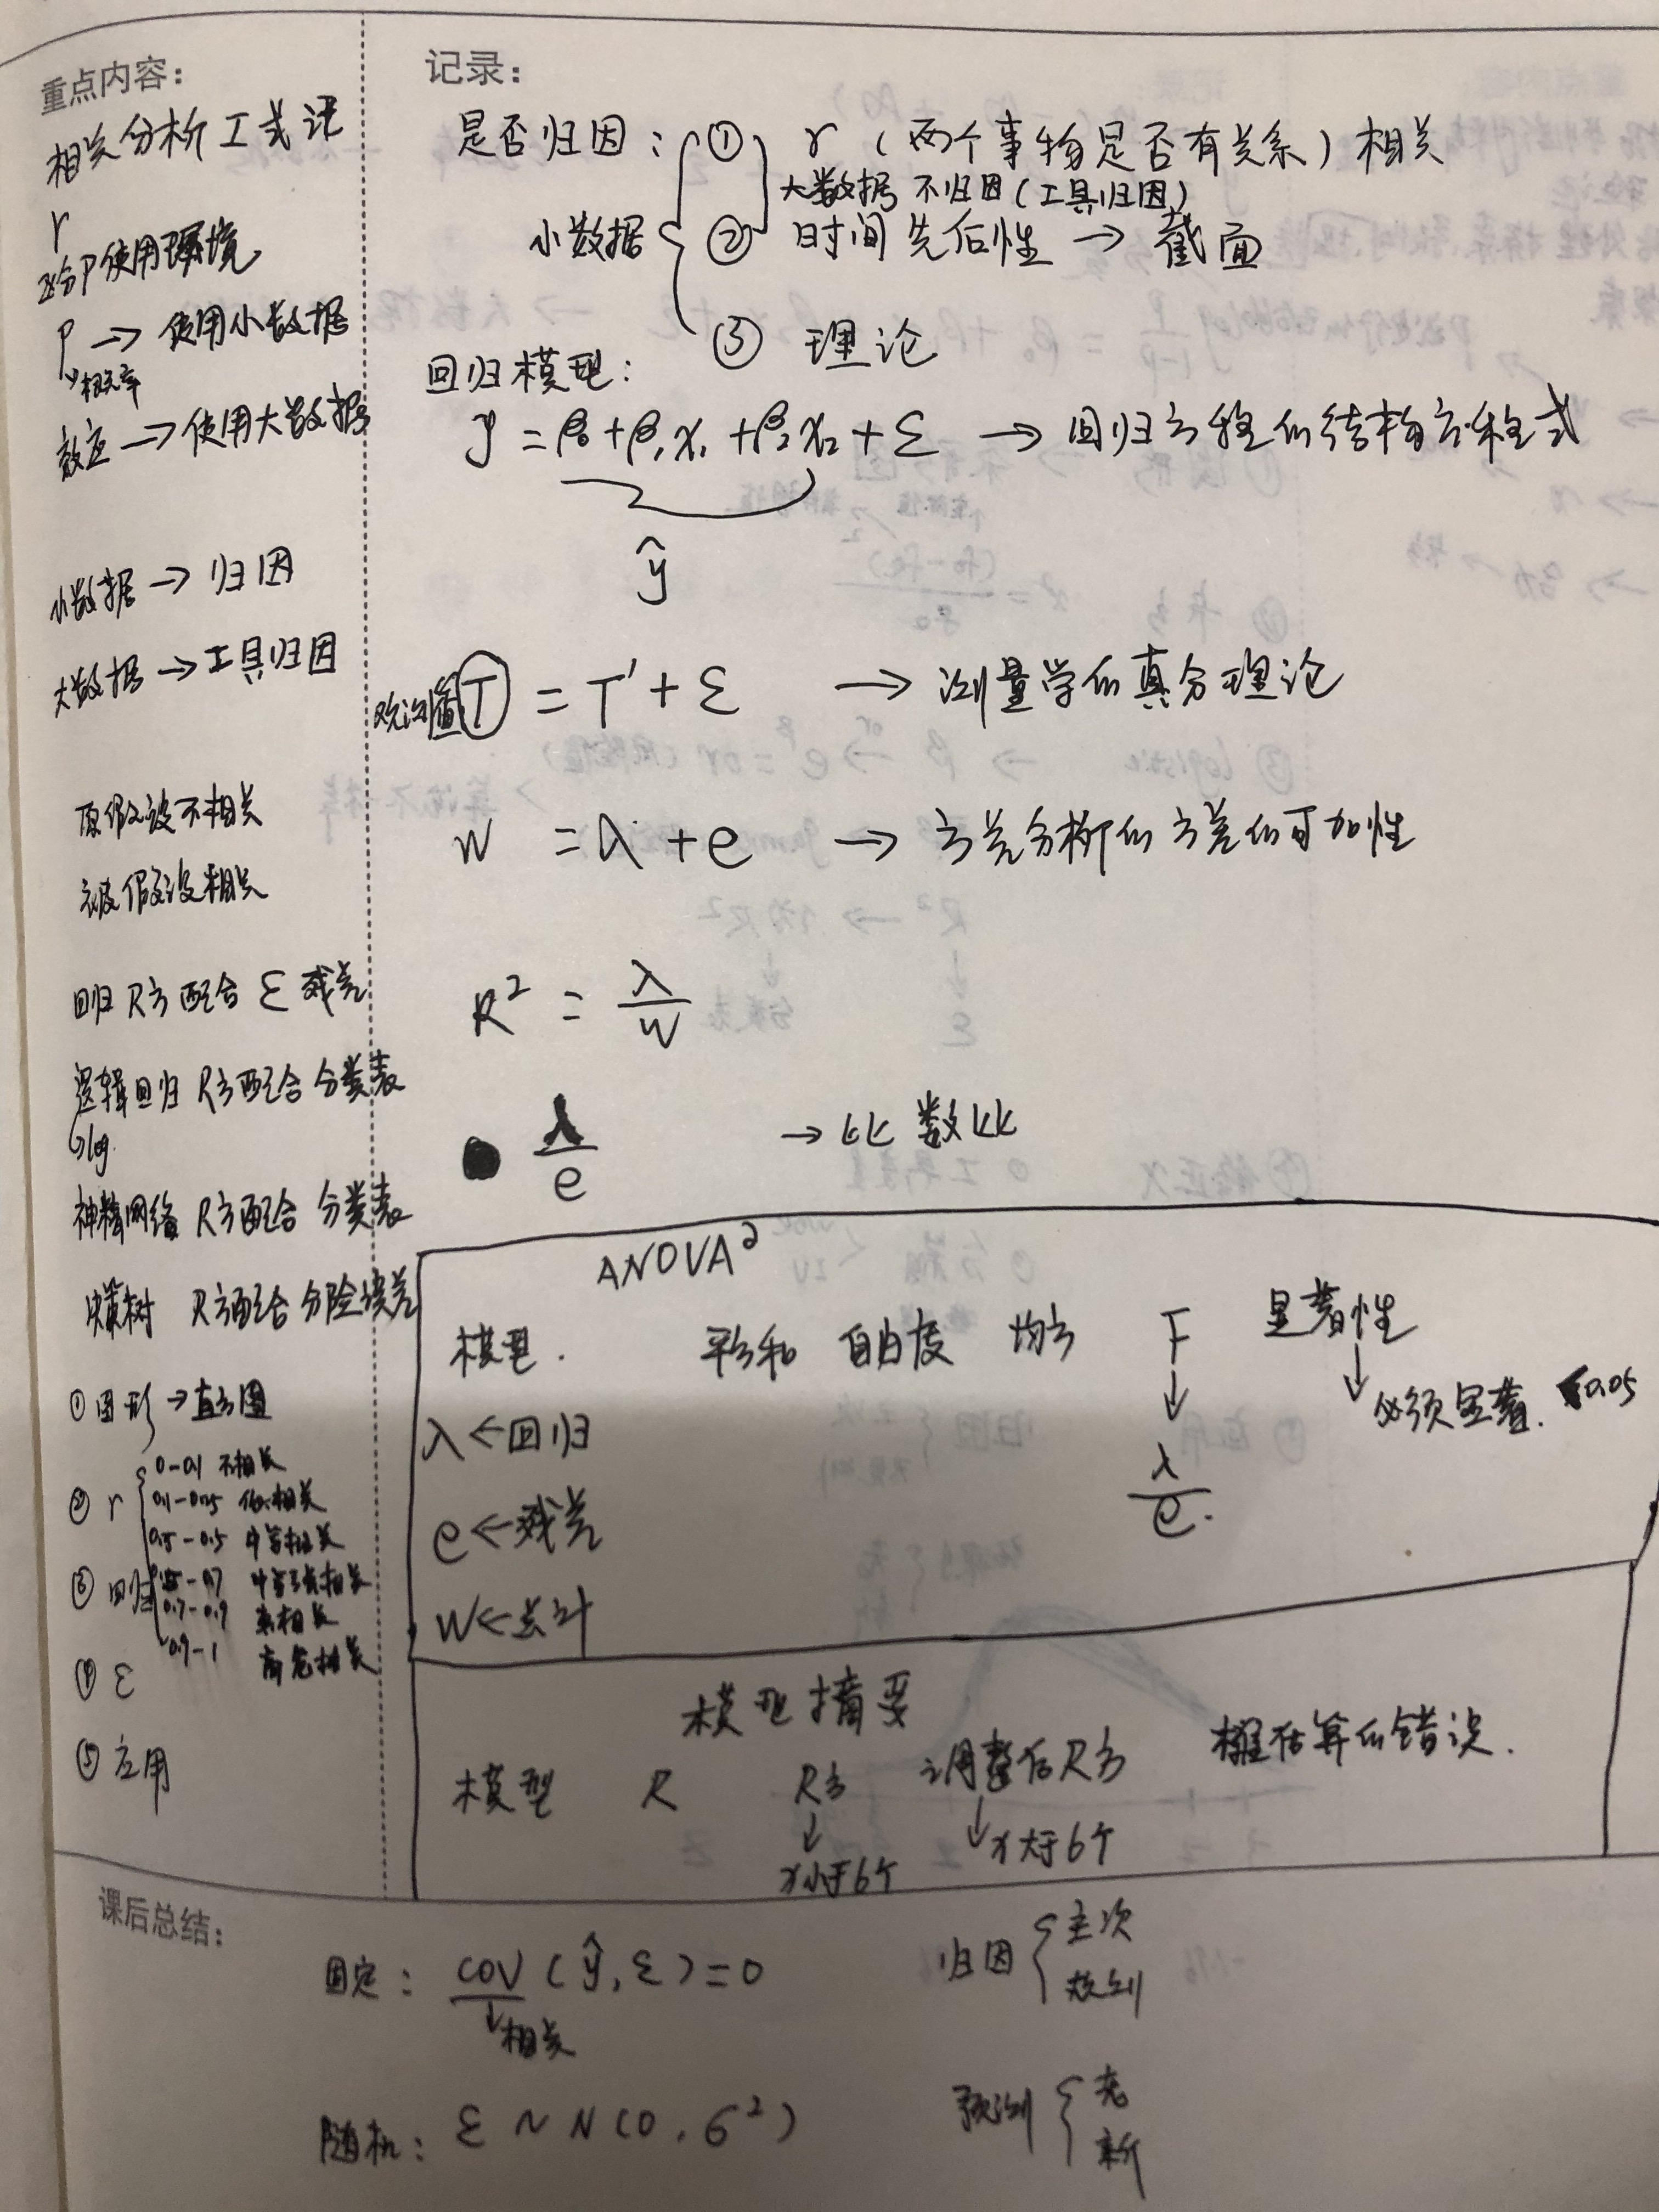 重点内容：
相关分析工式记
r
区分P使用环境
P → 使用小数据
↘概率
效应 → 使用大数据
小数据 → 归因
大数据 → 工具归因
原假设不相关
被假设相关
回归 R方 配合 ε 残差
逻辑回归 R方配合 分类表
↳log.
神精网络 R方配合 分类表
决策树 R方配合 分险误差
① 图形 → 直方图
② r
0-0.1 不相关
0.1-0.25 低相关
0.5 - 0.5 中等相关
0.7 中等 相关
0.7-0.9 相关
0.9-1 高 相关
③ 回归
④ ε
⑤ 应用
记录：
是否归因： ① r （两个事物是否有关系）相关
大数据 不归因（工具归因）
小数据 ② 时间先后性 → 截面
③ 理论
回归模型：
y = β₀ + β₁x₁ + β₂x₂ + ε → 回归方程的结构方程式
ŷ
观测值 T = T' + ε → 测量学的真分理论
W = λ + e → 方差分析的方差的可加性
R² = λ/W
λ/e → 比数比
ANOVA²
模型. 平方和 自由度 均方 F 显著性
↓ 必须显著. <0.05
λ ← 回归
↓ λ/e.
e ← 残差
W ← 总计
模型摘要
模型 R R方 调整后R方 估算的错误.
↓ x小于6个
↓ x大于6个
课后总结：
固定： cov (ŷ, ε) = 0
↓相关
归因 { 主次
随机： ε ~ N(0, σ²)
预测 { 老
新